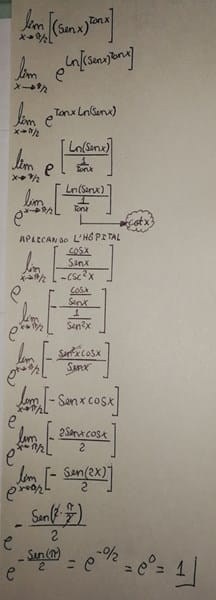 lim x→π/2 [(Sen x)^Tan x]
lim x→π/2 e^Ln[(Sen x)^Tan x]
lim x→π/2 e^Tan x Ln(Sen x)
lim x→π/2 e^[Ln(Sen x) / (1/Tan x)]
e^lim x→π/2 [Ln(Sen x) / (1/Tan x)] → cot x
APLICANDO L'HÔPITAL
e^lim x→π/2 [(cos x/Sen x) / -csc²x]
e^lim x→π/2 [-(cos x/Sen x) / (1/Sen²x)]
e^lim x→π/2 [-Sen²x cos x / Sen x]
e^lim x→π/2 [-Sen x cos x]
e^lim x→π/2 [-2Sen x cos x / 2]
e^lim x→π/2 [-Sen(2x) / 2]
e^-Sen(2·π/2)/2
e^-Sen(π)/2 = e^-0/2 = e^0 = 1